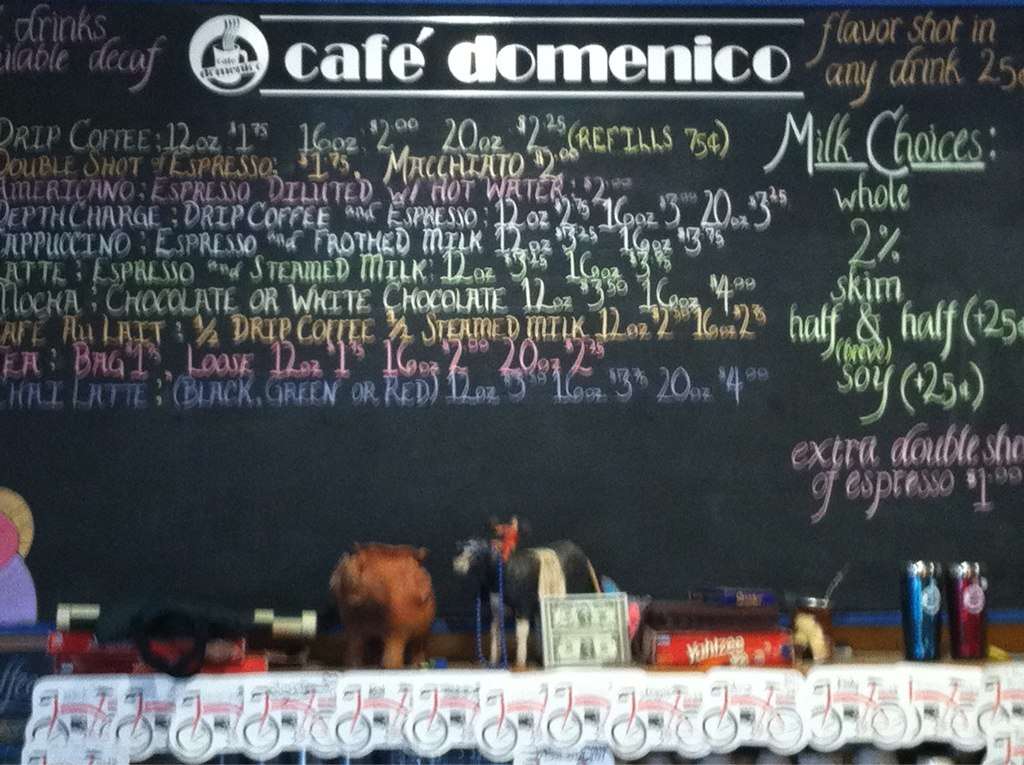 drinks
decaf
café domenico
flavor shot in
any drink 25¢
DRIP COFFEE: 12oz $1.75 16oz $2.00 20oz $2.25 (REFILLS 75¢)
DOUBLE SHOT of ESPRESSO: $1.75, MACCHIATO
AMERICANO: ESPRESSO DILUTED W/ HOT WATER:
DEPTH CHARGE: DRIP COFFEE and ESPRESSO: 12oz $2.75 16oz 20oz $3.25
CAPPUCCINO: ESPRESSO and FROTHED MILK 12oz $3.25 16oz $3.75
LATTE: ESPRESSO and STEAMED MILK: 12oz $3.25 16oz $3.75
MOCHA: CHOCOLATE OR WHITE CHOCOLATE 12oz $3.50 16oz
CAFÉ AU LAIT: ½ DRIP COFFEE ½ STEAMED MILK 12oz 16oz
TEA: BAG LOOSE 12oz 16oz 20oz
CHAI LATTE: (BLACK, GREEN OR RED) 12oz 16oz 20oz
Milk Choices:
whole
2%
skim
half & half (+25¢
(breve)
soy (+25¢)
extra double shot
of espresso
Yahtzee